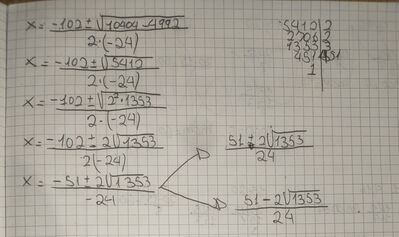 x = (-102 ± √(10404 - 4992)) / (2·(-24))
x = (-102 ± √(5412)) / (2·(-24))
x = (-102 ± √(2²·1353)) / (2·(-24))
x = (-102 ± 2√(1353)) / (2(-24))
x = (-51 ± 2√(1353)) / (-24)
(51 ± 2√(1353)) / 24
(51 - 2√(1353)) / 24
5412 | 2
2706 | 2
1353 | 3
451 | 451
1 |